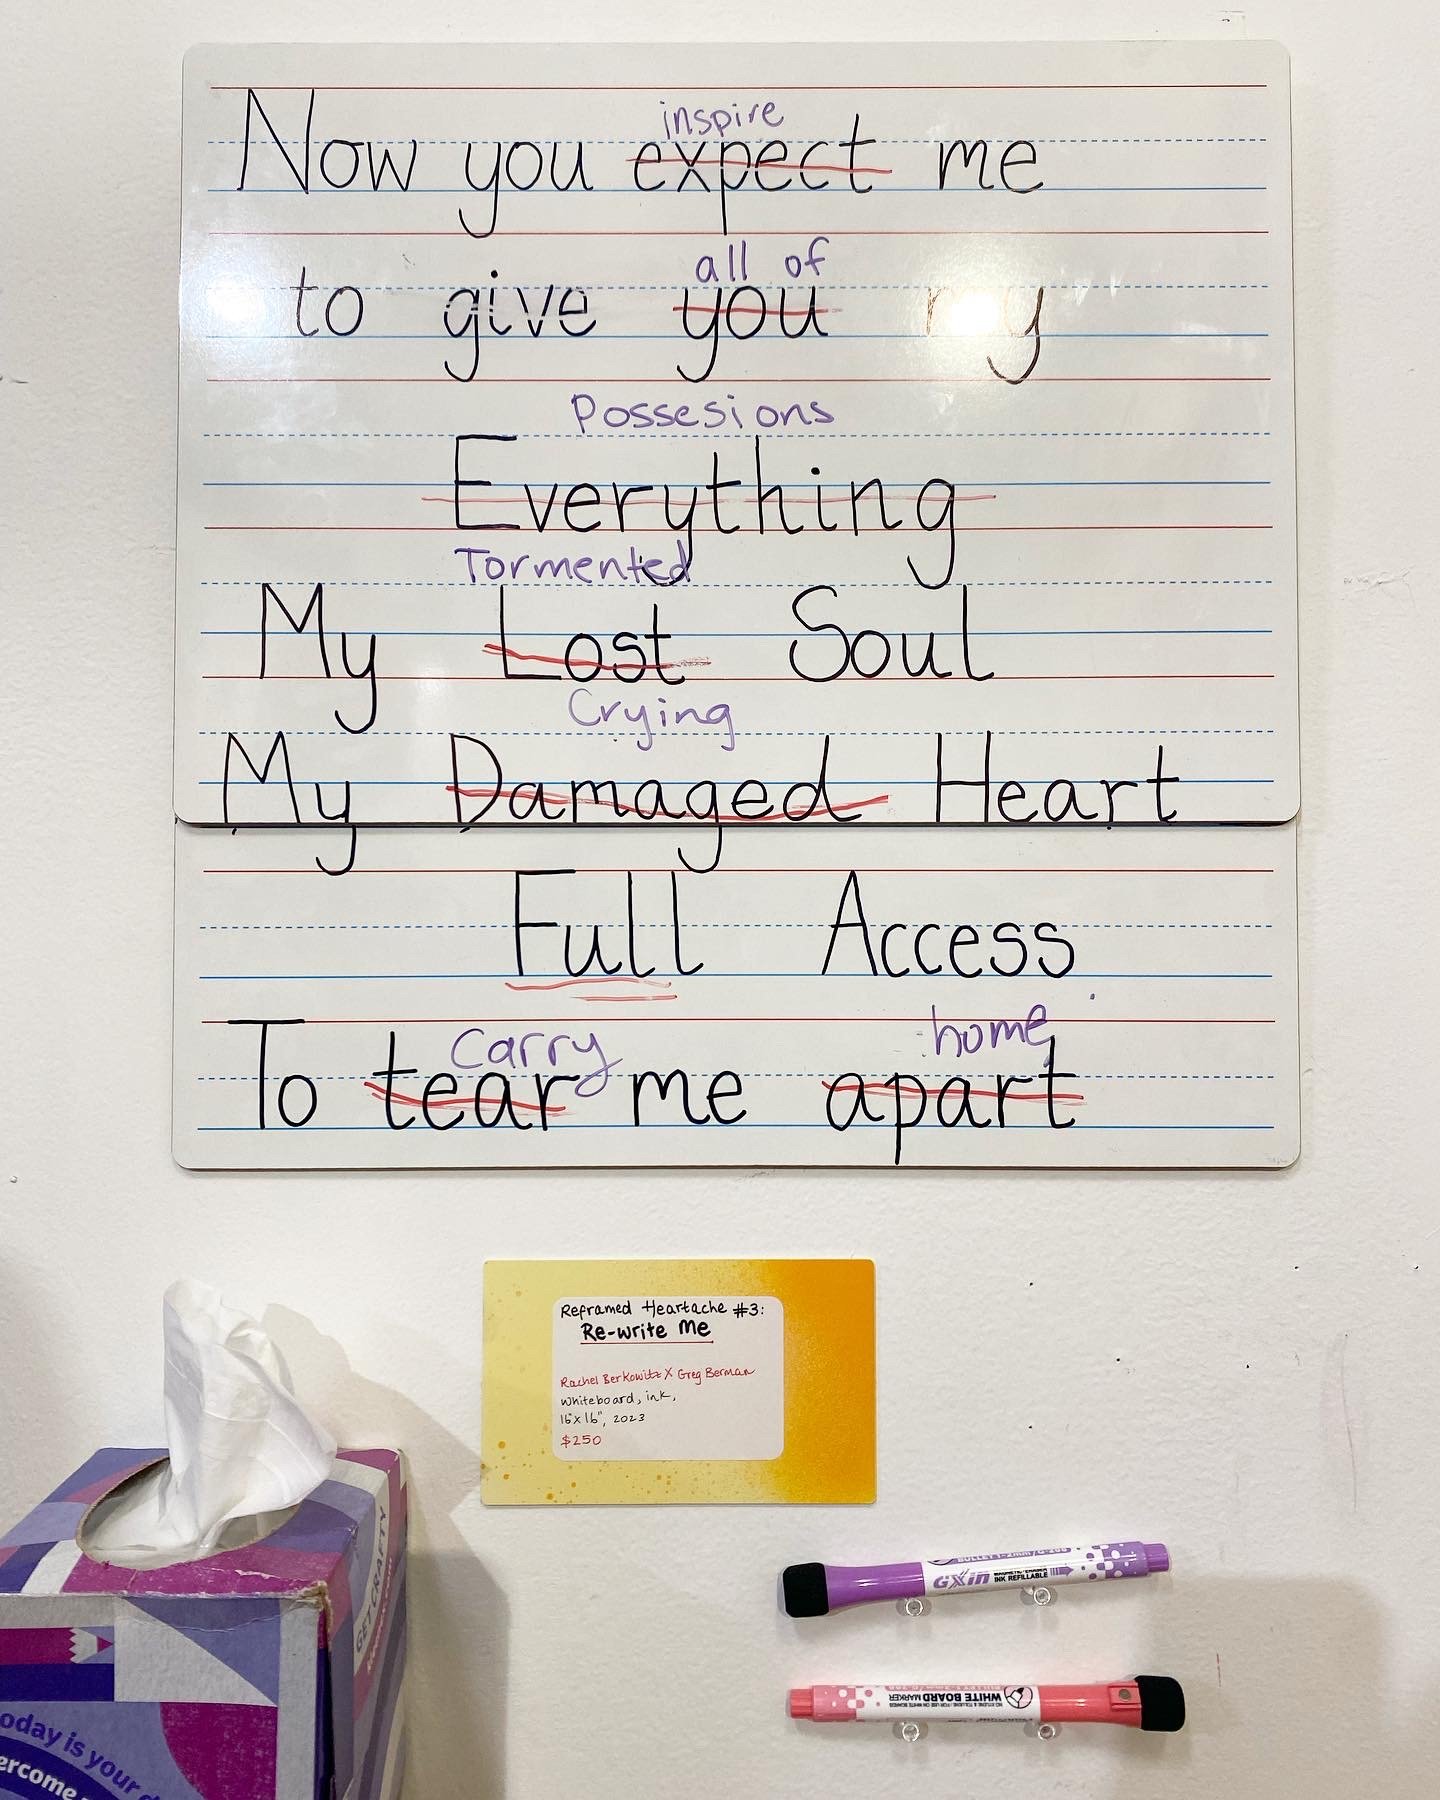 inspire
Now you expect me
all of
to give you my
Possesions
Everything
Tormented
My Lost Soul
Crying
My Damaged Heart
Full Access
Carry home
To tear me apart
Reframed Heartache #3:
Re-write Me
Rachel Berkowitz X Greg Berman
Whiteboard, ink,
16"x16", 2023
$250
BULLET 1-2mm/G-208
GXin
INK REFILLABLE
WHITE BOARD
MARKER
GET CRAFTY
oday is your
ercome